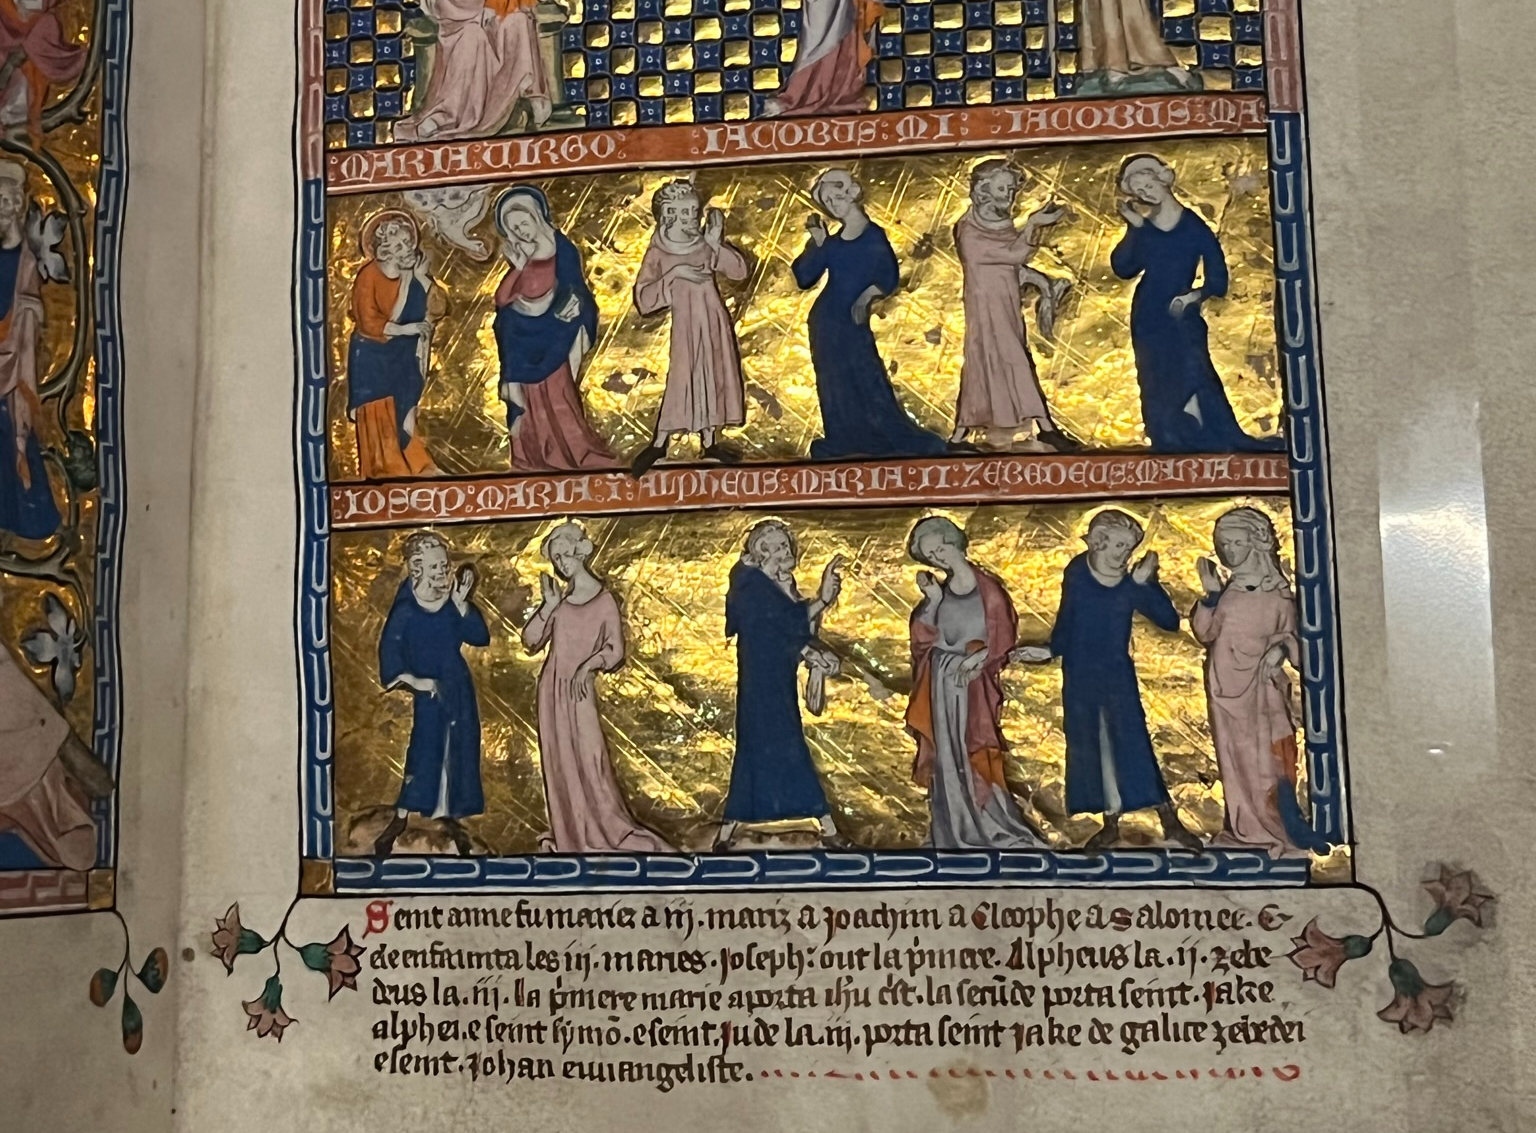 :MARIA:VIRGO: IACOBUS: MI: :IACOBUS: MA
:IOSEP: MARIA: I: ALPHEUS: MARIA: II: ZEBEDEUS: MARIA. III
Seint anne fu mariez a iij. mariz a Joachim a Cleophe a Salomee. &
de enfaunta les iij. maries. Joseph: out la p'mere. Alpheus la .ij. zebe
deus la .iij. la p'mere marie aporta ihu c'st. la secūde porta seint. Jake
alphei. e seint symō. e seint. Jude la .iij. porta seint Jake de galice zebedei
e seint. Johan ewangeliste.